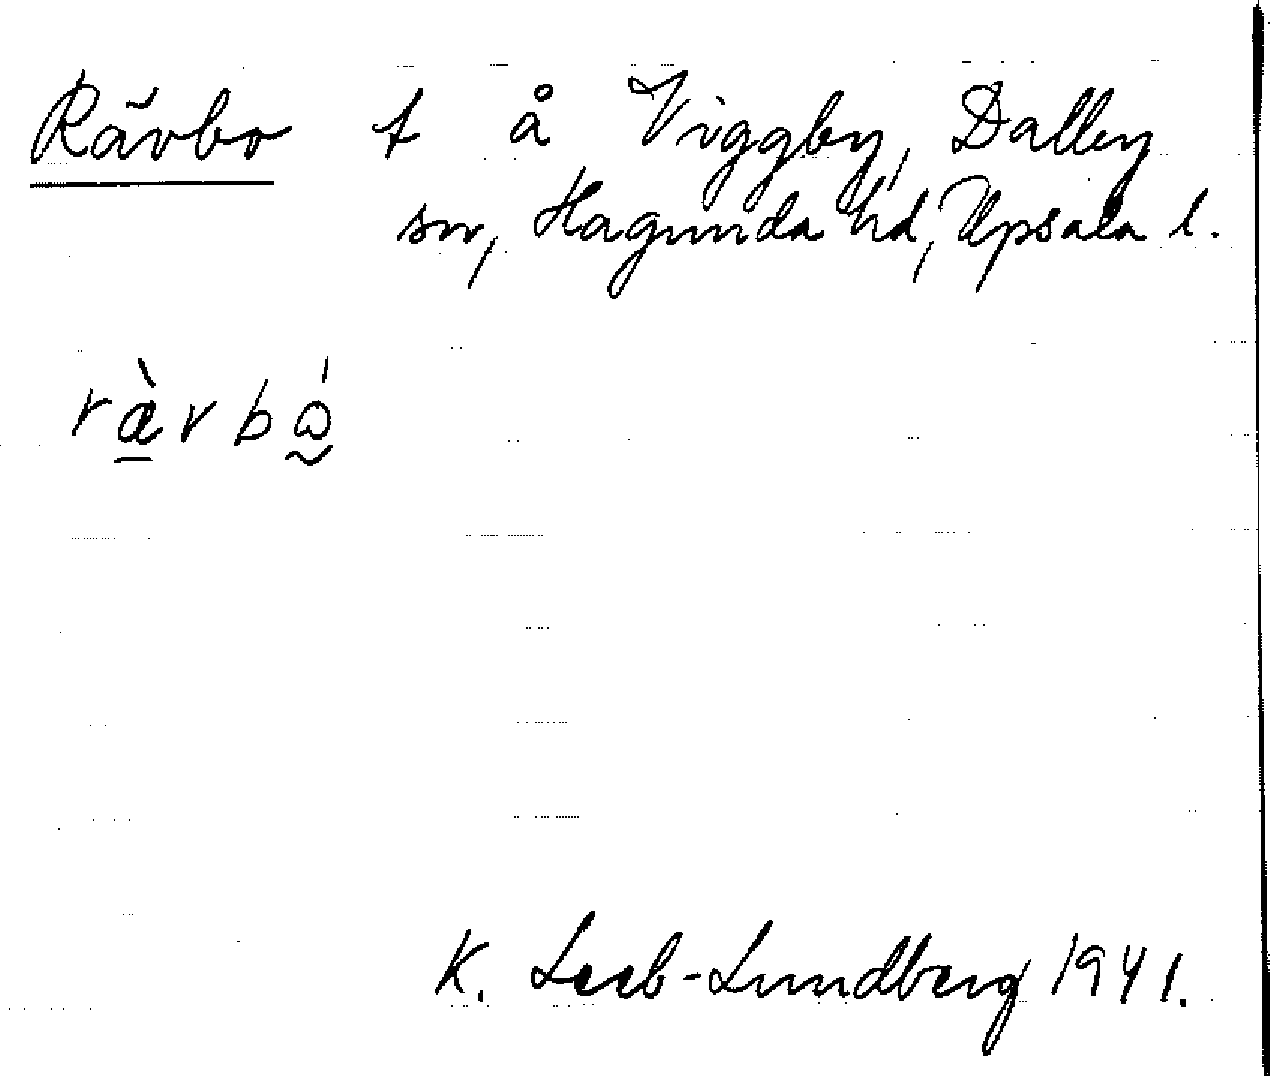 Rävbo t å Viggby, Dalby
sn, Hagunda hd, Upsala l.
ræ̀vbó̰
K. Leeb-Lundberg 1941.